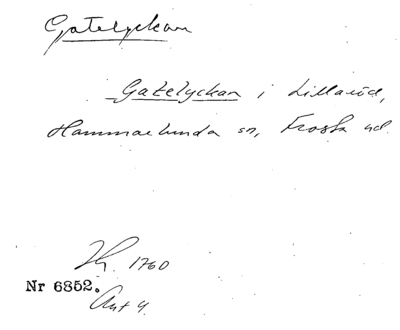 Gatelyckan
Gatelyckan i Lillaröd,
Hammarlunda sn, Frosta hd.
1760
Nr 6852.
Ant 4.